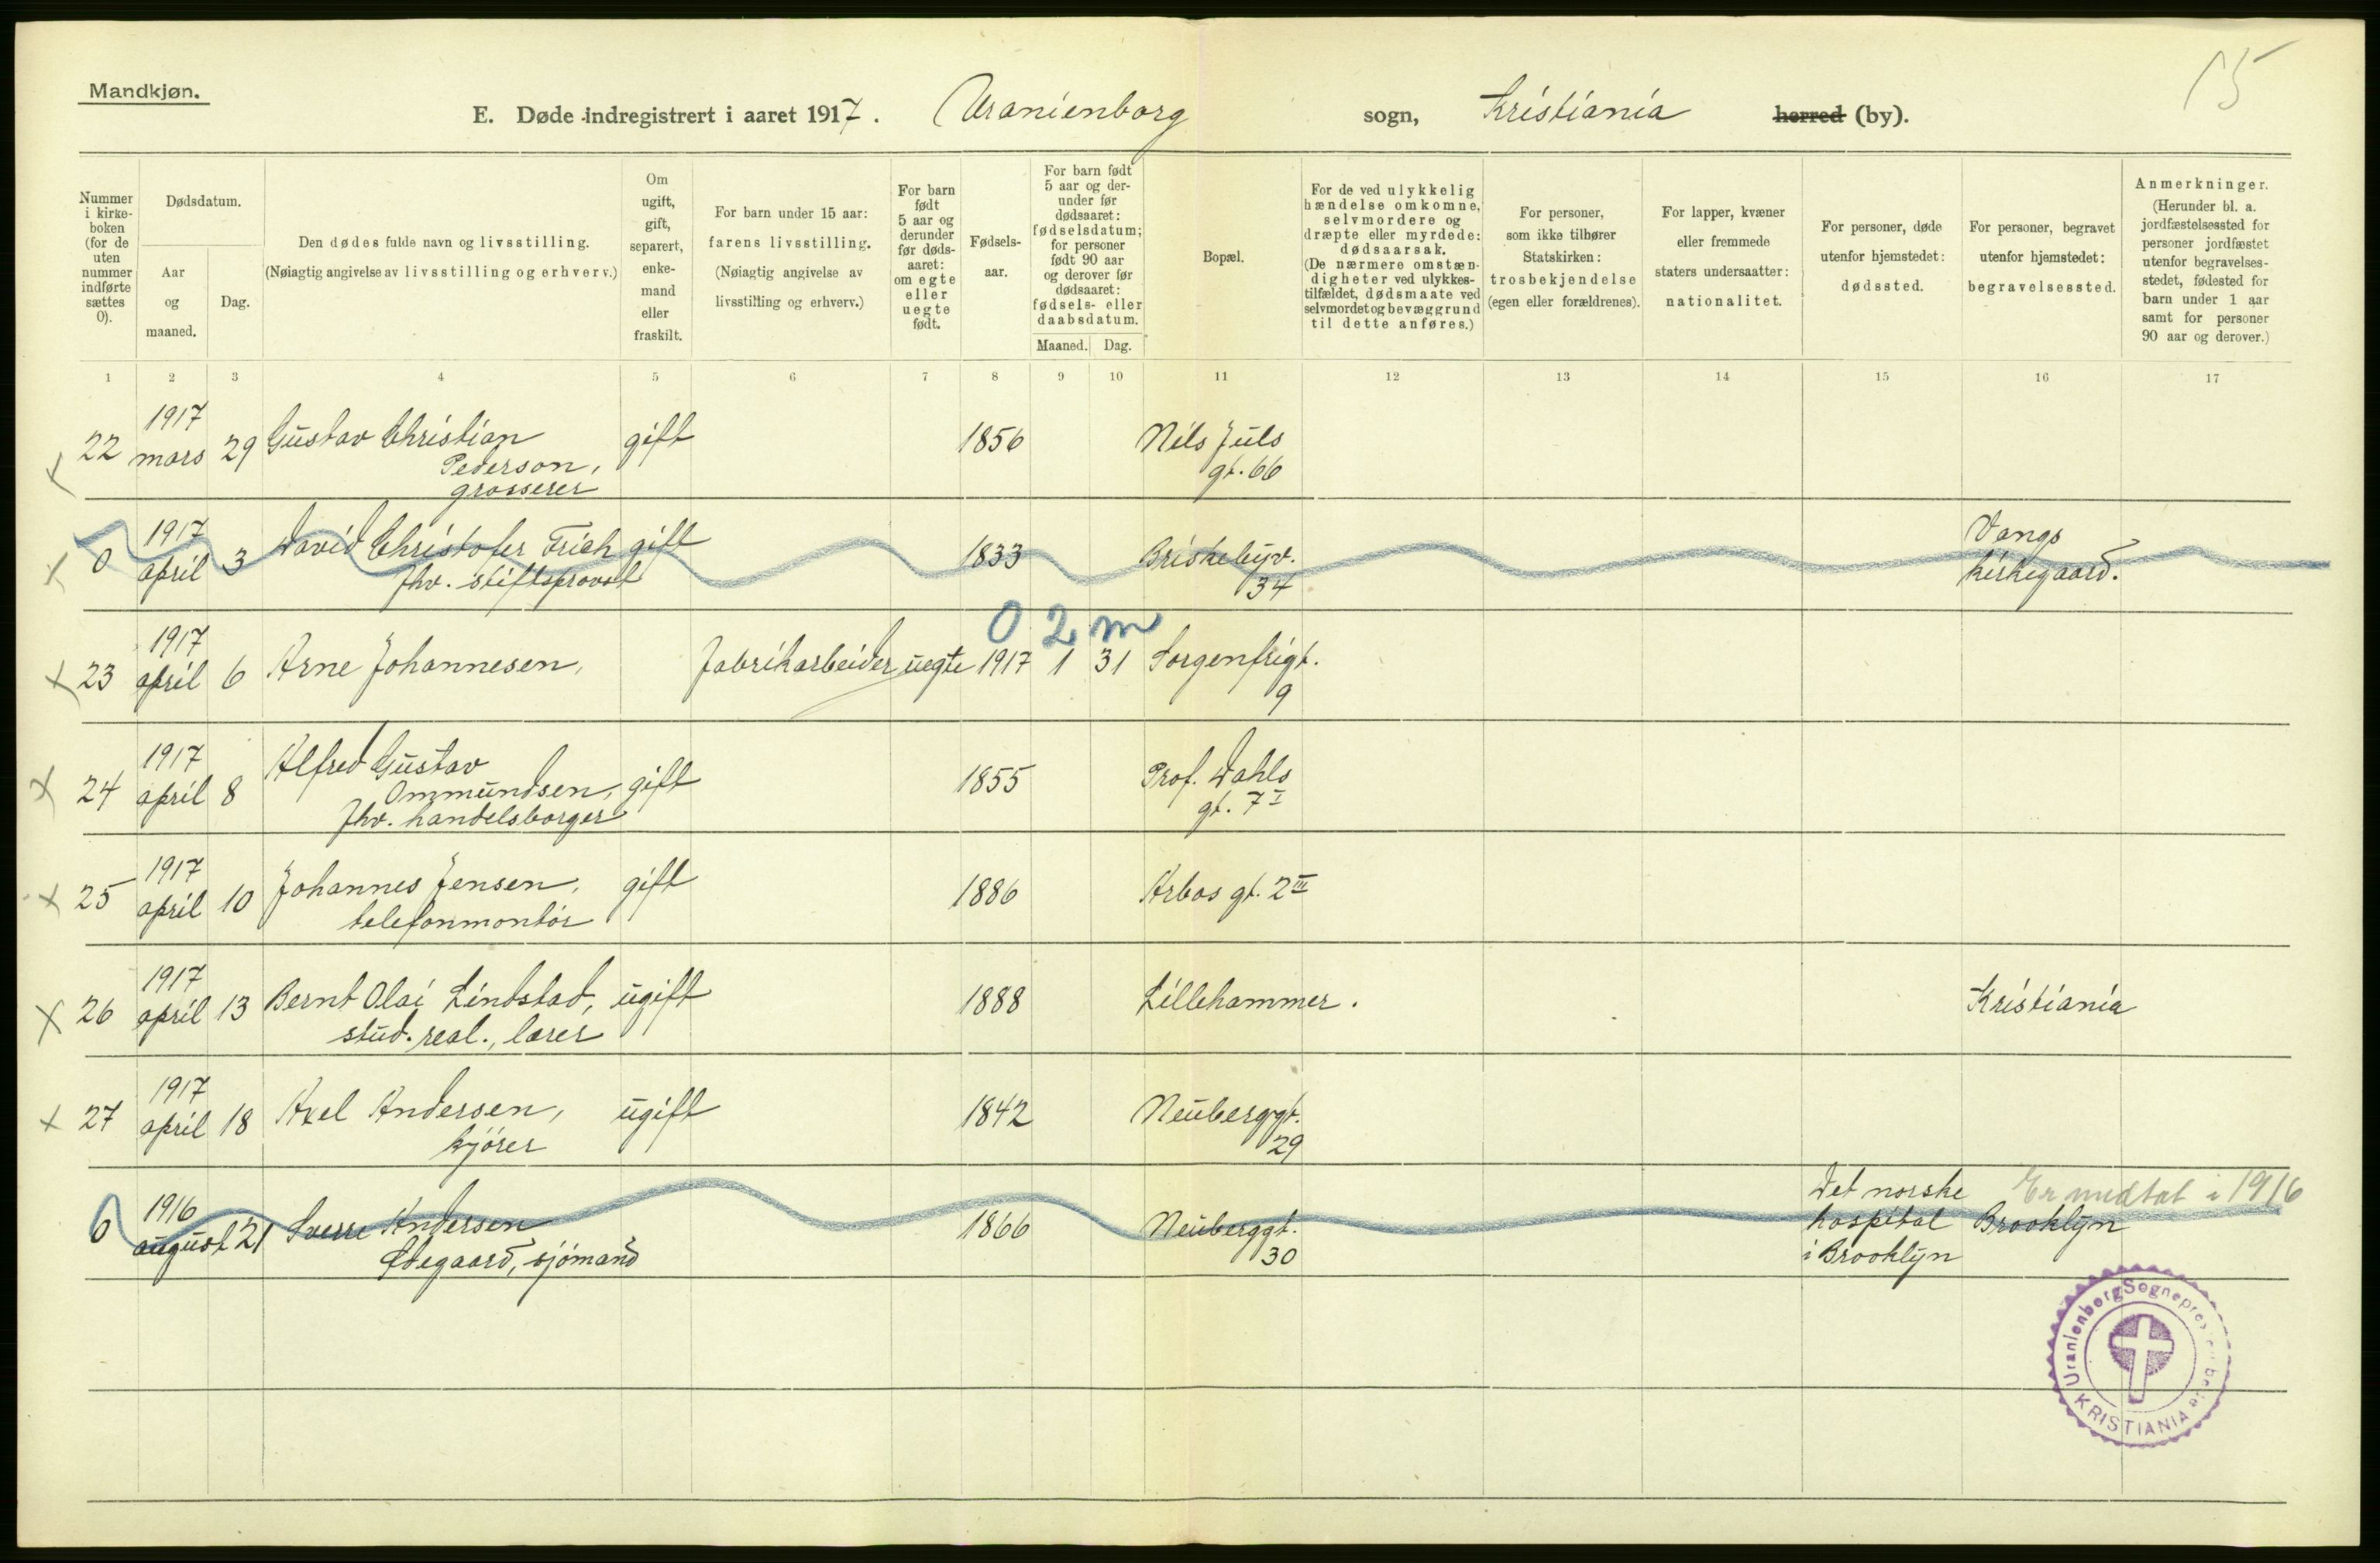 15
Mandkjøn.
E. Døde indregistrert i aaret 1917. Uranienborg sogn, Kristiania herred (by).
Nummer i kirke-boken (for de uten nummer indførte sættes 0).
Dødsdatum.
Aar og maaned.
Dag.
Den dødes fulde navn og livsstilling.
(Nøiagtig angivelse av livsstilling og erhverv.)
Om ugift, gift, separert, enke-mand eller fraskilt.
For barn under 15 aar: farens livsstilling.
(Nøiagtig angivelse av livsstilling og erhverv.)
For barn født 5 aar og derunder før døds-aaret: om egte eller uegte født.
Fødsels-aar.
For barn født 5 aar og der-under før dødsaaret: fødselsdatum; for personer født 90 aar og derover før dødsaaret: fødsels- eller daabsdatum.
Maaned. Dag.
Bopæl.
For de ved ulykkelig hændelse omkomne, selvmordere og dræpte eller myrdede: dødsaarsak.
(De nærmere omstæn-digheter ved ulykkes-tilfældet, dødsmaate ved selvmordet og bevæggrund til dette anføres.)
For personer, som ikke tilhører Statskirken: trosbekjendelse (egen eller forældrenes).
For lapper, kvæner eller fremmede staters undersaatter: nationalitet.
For personer, døde utenfor hjemstedet: dødssted.
For personer, begravet utenfor hjemstedet: begravelsessted.
Anmerkninger.
(Herunder bl. a. jordfæstelsessted for personer jordfæstet utenfor begravelses-stedet, fødested for barn under 1 aar samt for personer 90 aar og derover.)
1 2 3 4 5 6 7 8 9 10 11 12 13 14 15 16 17
22 1917 mars 29 Gustav Christian Pederson, grosserer gift 1856 Nils Juls gt. 66
0 1917 april 3 David Christofer Frich fhv. stiftsprovst gift 1833 Briskebyv. 34 Vangs kirkegaard.
0 2 m
23 1917 april 6 Arne Johannesen, fabrikarbeider uegte 1917 1 31 Sorgenfrigt. 9
24 1917 april 8 Alfred Gustav Ommundsen, fhv. handelsborger gift 1855 Prof. Dahls gt. 7 I
25 1917 april 10 Johannes Jensen, telefonmontör gift 1886 Arbos gt. 2 III
26 1917 april 13 Bernt Olai Lindstad, stud. real., lærer ugift 1888 Lillehammer. Kristiania
27 1917 april 18 Axel Andersen, kjörer ugift 1842 Neuberggt. 29
0 1916 august 21 Sverre Andersen Ødegaard, sjömand 1866 Neuberggt. 30 Det norske hospital i Brooklyn Brooklyn
Er medtat i 1916
Uranienborg Sogneprestembede KRISTIANIA